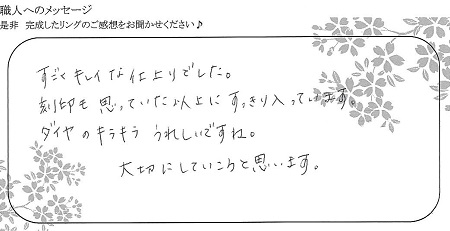 職人へのメッセージ
是非 完成したリングのご感想をお聞かせください♪
すごくキレイな仕上りでした。
刻印も思っていた以上にすっきり入っています。
ダイヤのキラキラうれしいですね。
大切にしていこうと思います。